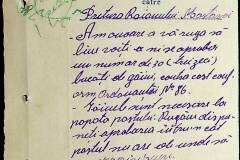 către
Pretura Raionului Hântăuți
- Am onoare a vă ruga să
bine voiți a ni se aproba
un număr de 30 (treizeci)
bucăți de găini, contra cost conf
orm Ordonanței № 86.
- Găinile sunt necesare la
popota postului. Rugăm dis-
puneți aprobarea întru cât
postul nu are de unde să